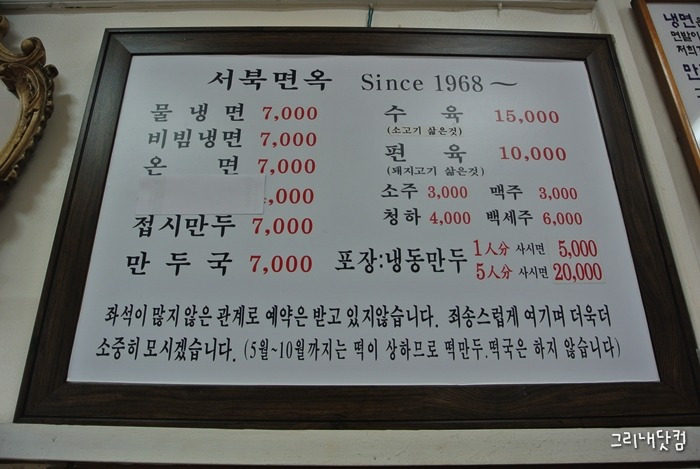 서북면옥 Since 1968~
물냉면 7,000
비빔냉면 7,000
온면 7,000
,000
접시만두 7,000
만두국 7,000
수육 15,000
(소고기 삶은것)
편육 10,000
(돼지고기 삶은것)
소주 3,000 맥주 3,000
청하 4,000 백세주 6,000
포장:냉동만두 1人分 사시면 5,000
5人分 사시면 20,000
좌석이 많지 않은 관계로 예약은 받고 있지않습니다. 죄송스럽게 여기며 더욱더
소중히 모시겠습니다. (5월~10월까지는 떡이 상하므로 떡만두.떡국은 하지 않습니다)
냉면
만
그리내닷컴